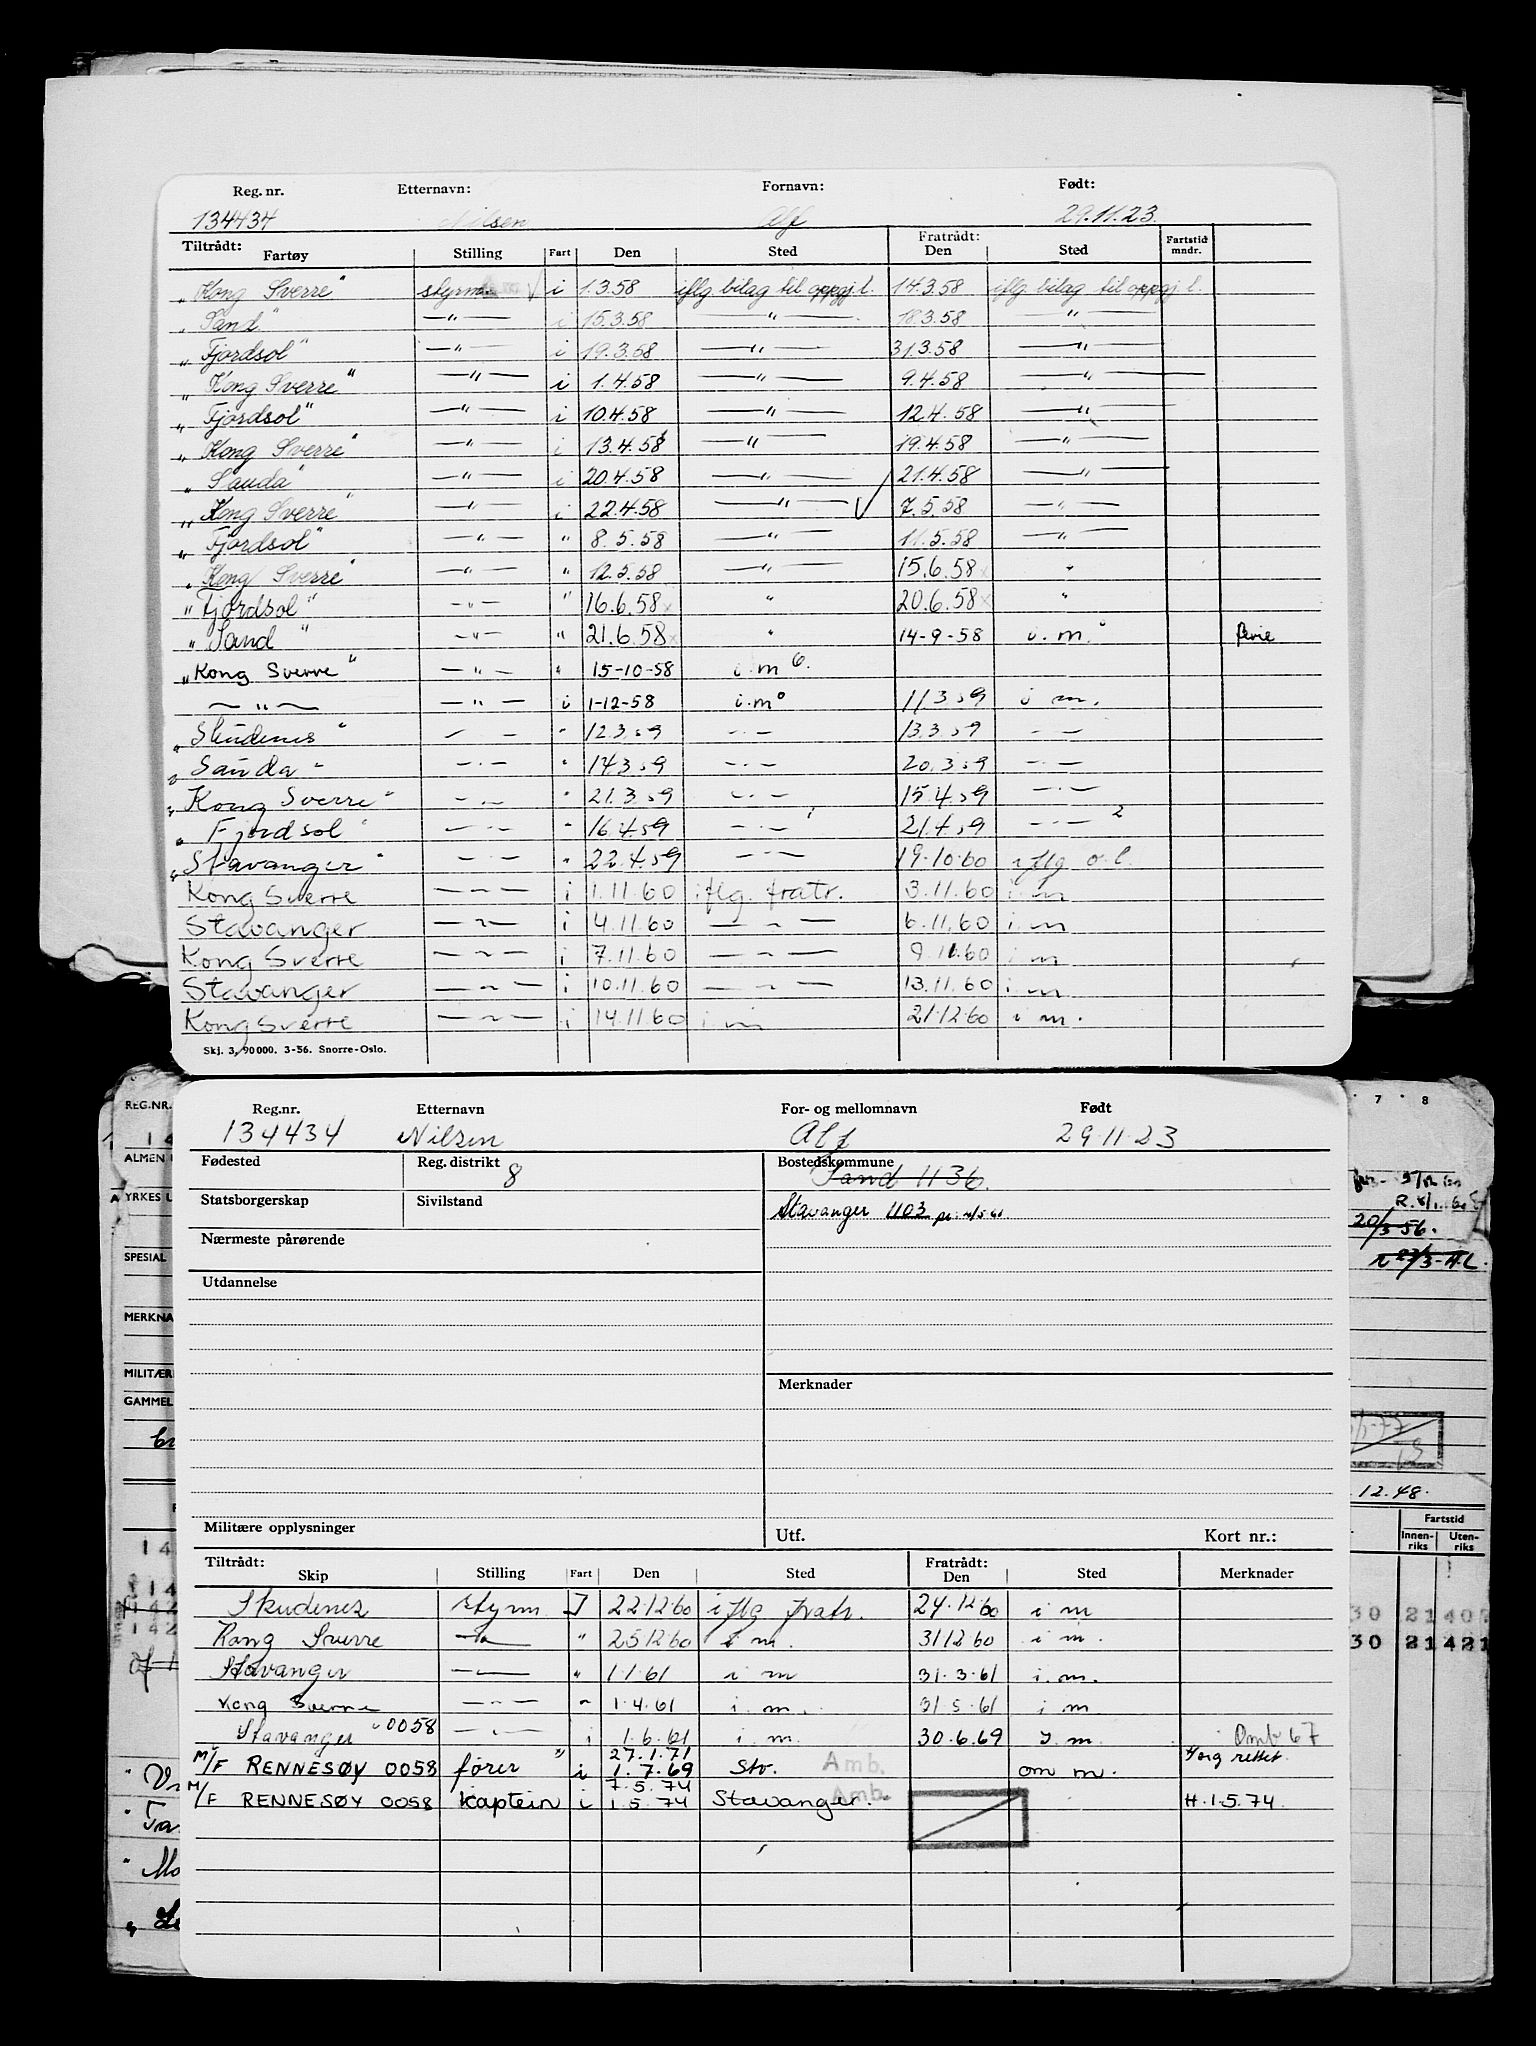 Reg. nr. Etternavn: Fornavn: Født:
134434 Nilsen Alf 29.11.23.
Tiltrådt: Fratrådt:
Fartøy Stilling Fart Den Sted Den Sted Fartstid mndr.
"Kong Sverre" styrm. i 1.3.58 iflg bilag til oppgj. l. 14.3.58 iflg. bilag til oppgj. l.
"Sand" —"— i 15.3.58 —"— 18.3.58 —"—
"Fjordsol" —"— i 19.3.58 —"— 31.3.58 —"—
"Kong Sverre" —"— i 1.4.58 —"— 9.4.58 —"—
"Fjordsol" —"— i 10.4.58 —"— 12.4.58 —"—
"Kong Sverre" —"— i 13.4.58 —"— 19.4.58 —"—
"Sauda" —"— i 20.4.58 —"— 21.4.58 —"—
"Kong Sverre" —"— i 22.4.58 —"— 7.5.58 —"—
"Fjordsol" —"— " 8.5.58 —"— 11.5.58 —"—
"Kong Sverre" —"— " 12.5.58 —"— 15.6.58 "
"Fjordsol" —"— " 16.6.58 " 20.6.58 "
"Sand" —"— " 21.6.58 " 14-9-58 i.m. ferie
"Kong Sverre" —"— " 15-10-58 i.m
—"— —"— i 1-12-58 i.m 11.3.59 i m.
"Skudenes" —"— " 12.3.59 —"— 13.3.59 —"—
"Sauda" —"— " 14.3.59 —"— 20.3.59 —"—
"Kong Sverre" —"— " 21.3.59 —"— 15.4.59 —"—
"Fjordsol" —"— " 16.4.59 —"— 21.4.59 —"—
"Stavanger" —"— " 22.4.59 —"— 19.10.60 iflg o.l.
Kong Sverre —"— i 1.11.60 iflg. fratr. 3.11.60 i.m
Stavanger —"— i 4.11.60 —"— 6.11.60 i.m
Kong Sverre —"— i 7.11.60 —"— 9.11.60 i m
Stavanger —"— i 10.11.60 —"— 13.11.60 i.m
Kong Sverre —"— i 14.11.60 i m 21.12.60 i m.
Skj. 3, 90 000. 3-56. Snorre-Oslo.
Reg.nr. Etternavn For- og mellomnavn Født
134434 Nilsen Alf 29.11.23
Fødested Reg. distrikt 8 Bostedskommune
Sand 1136.
Statsborgerskap Sivilstand Stavanger 1103
Nærmeste pårørende
Utdannelse
Merknader
Militære opplysninger Utf. Kort nr.:
Tiltrådt: Fratrådt:
Skip Stilling Fart Den Sted Den Sted Merknader
Skudenes styrm I 22.12.60 iflg fratr. 24.12.60 i m
Kong Sverre —"— " 25.12.60 i m. 31.12.60 i m.
Stavanger —"— " 1.1.61 i m 31.3.61 i.m.
Kong Sverre —"— " 1.4.61 i.m. 31.5.61 i m
Stavanger 0058 —"— i 1.6.61 i.m. 30.6.69 I.m. Omb 67
27.1.71
M/F RENNESØY 0058 fører i 1.7.69 Stv. Amb. om m. rettet.
7.5.74
M/F RENNESØY 0058 kaptein i 1.5.74 Stavanger. Amb. H.1.5.74.
REG.NR.
ALMEN
YRKES
SPESIAL
MERKNA
MILITÆR
GAMMEL
7 8
20/3-56.
12.48.
Fartstid
Innen-riks Uten-riks
30 21 40
30 21 421